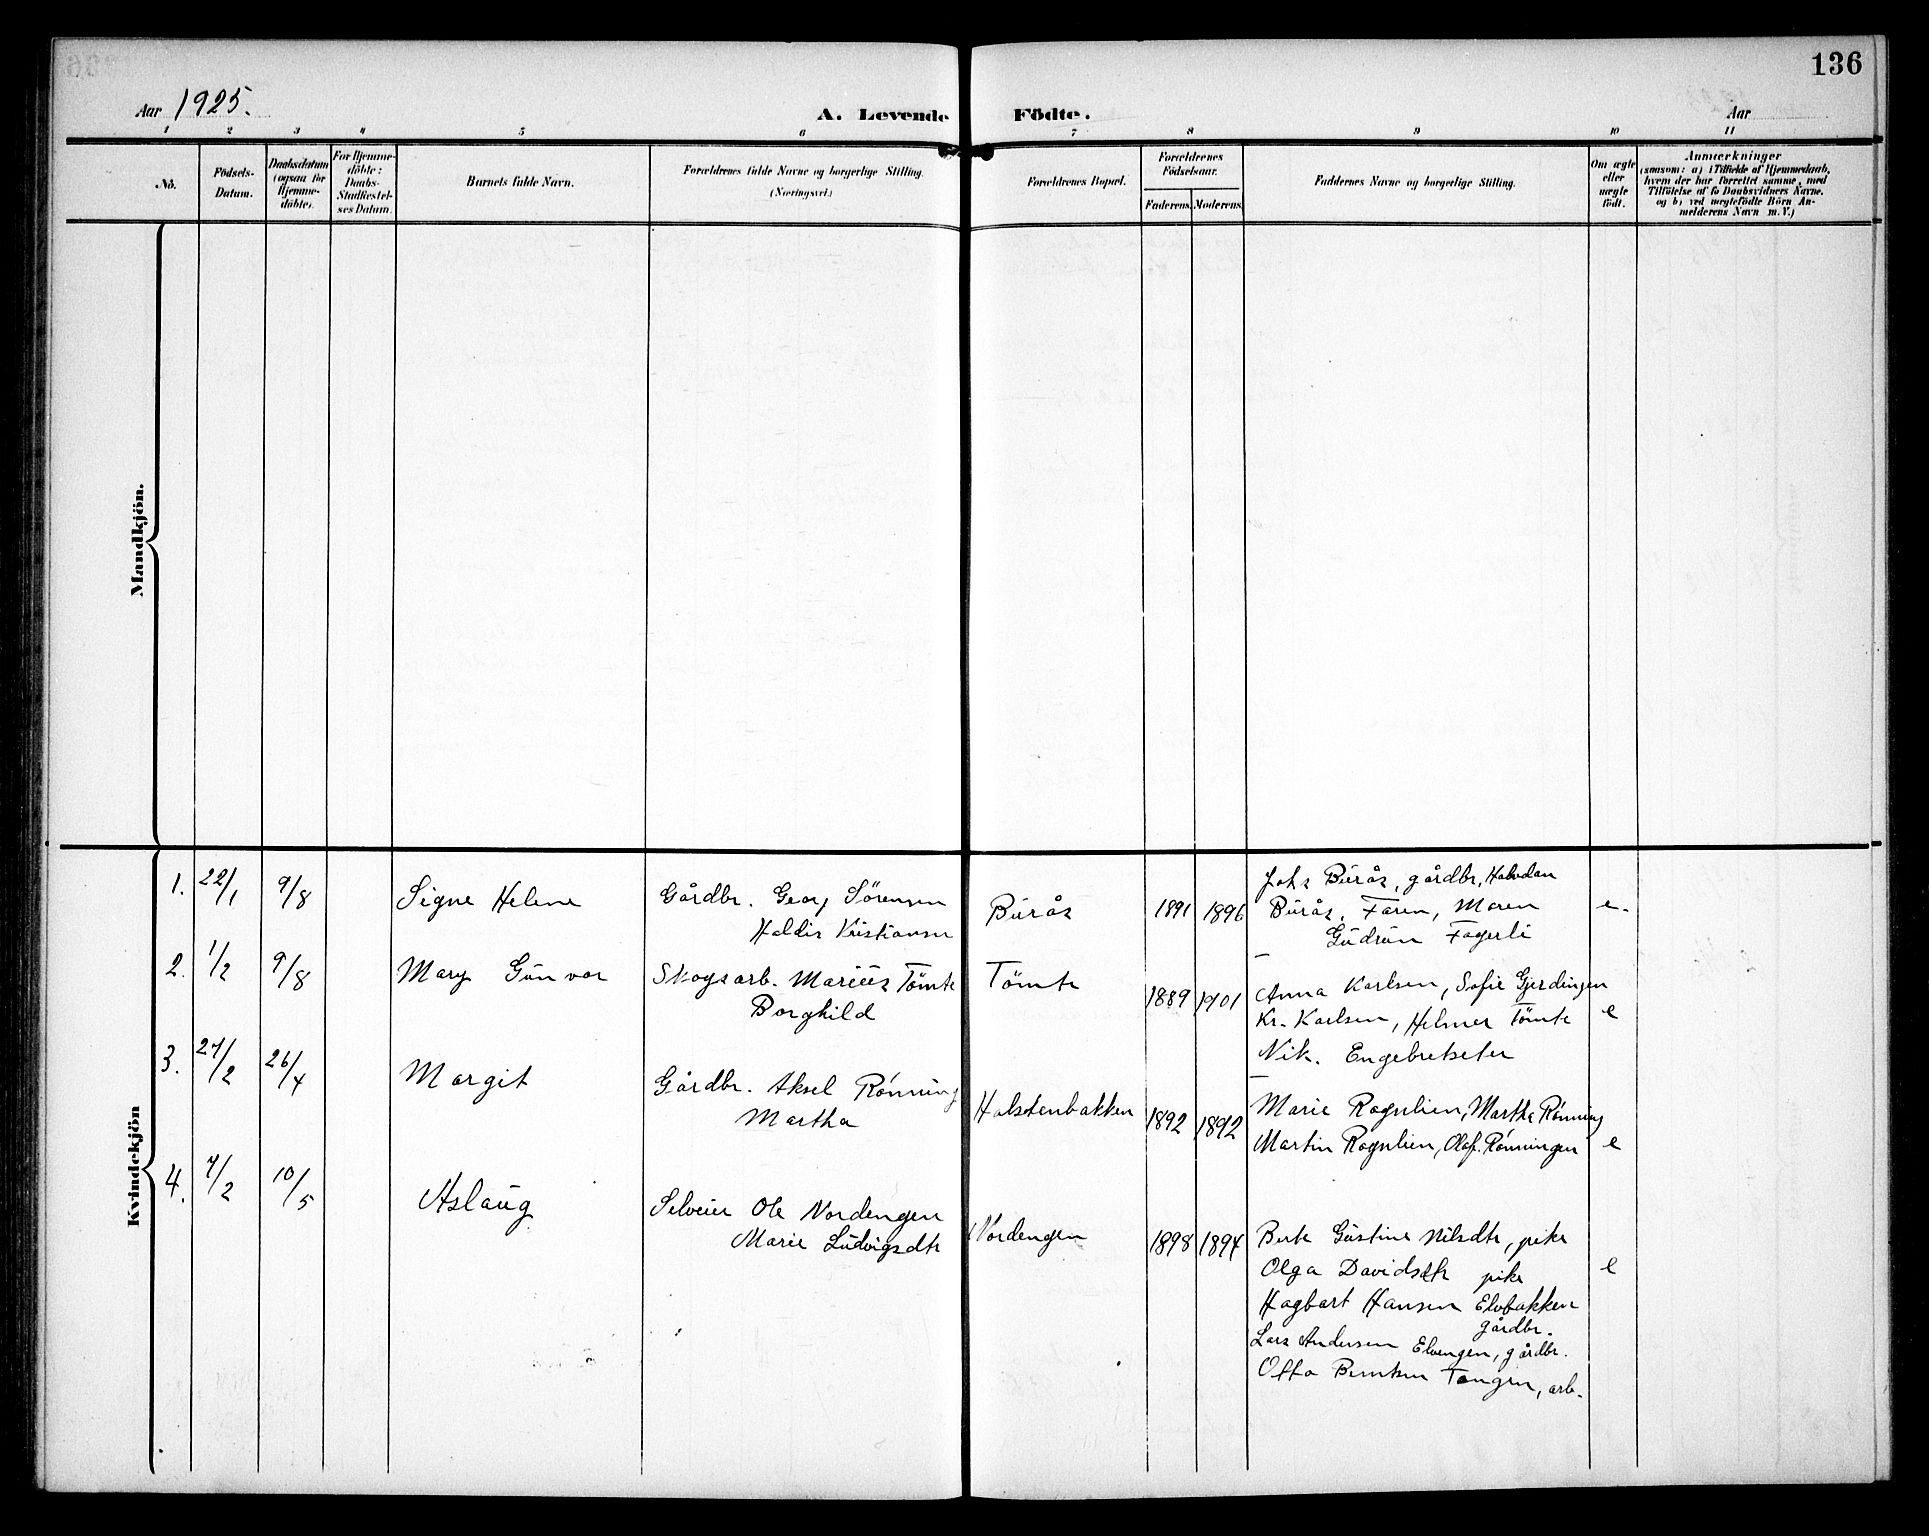 136
Aar 1925.
A. Levende Födte.
Aar
1 2 3 4 5 6 7 8 9 10 11
No.
Födsels-
Datum.
Daabsdatum
(ogsaa for
Hjemme-
döbte).
For Hjemme-
döbte:
Daabs-
Stadfæstel-
ses Datum.
Barnets fulde Navn.
Forældrenes fulde Navne og borgerlige Stilling.
(Næringsvei.)
Forældrenes Bopæl.
Forældrenes
Födselsaar.
Faderens. Moderens.
Faddernes Navne og borgerlige Stilling.
Om ægte
eller
uægte
födt.
Anmærkninger
(saasom: a) i Tilfælde af Hjemmedaab,
hvem der har forrettet samme, med
Tilföielse af to Daabsvidners Navne,
og b) ved uægtefödte Börn An-
melderens Navn m. V.)
Mandkjön.
Kvindekjön
1. 22/1 9/8 Signe Helene
Gårdbr. Georg Sörensen
Haldis Kristiansen
Burås 1891 1896
Johs Burås, gårdbr, Halvdan
Burås, Faren, Moren e.
Gudrun Fagerli
2. 1/2 9/8 Mary Gunvor
Skogsarb. Marius Tömte
Borghild
Tömte 1889 1901
Anna Karlsen, Sofie Gjerdingen
Kr. Karlsen, Helmer Tömte e
Nik. Engebretseter
3. 27/2 26/4 Margit
Gårdbr. Aksel Rönning
Martha
Halstenbakken 1892 1892
Marie Rognlien, Martha Rönning
Martin Rognlien, Olaf Rönningen e
4. 7/2 10/5 Aslaug
Selveier Ole Nordengen
Marie Ludvigsdtr
Nordengen 1898 1894
Berte Gustine Nilsdtr, pike
Olga Davidsdtr pike e
Hagbart Hansen Elvbakken
gårdbr.
Lars Andersen Elvengen, gårdbr.
Otto Berntsen Tangen, arb.